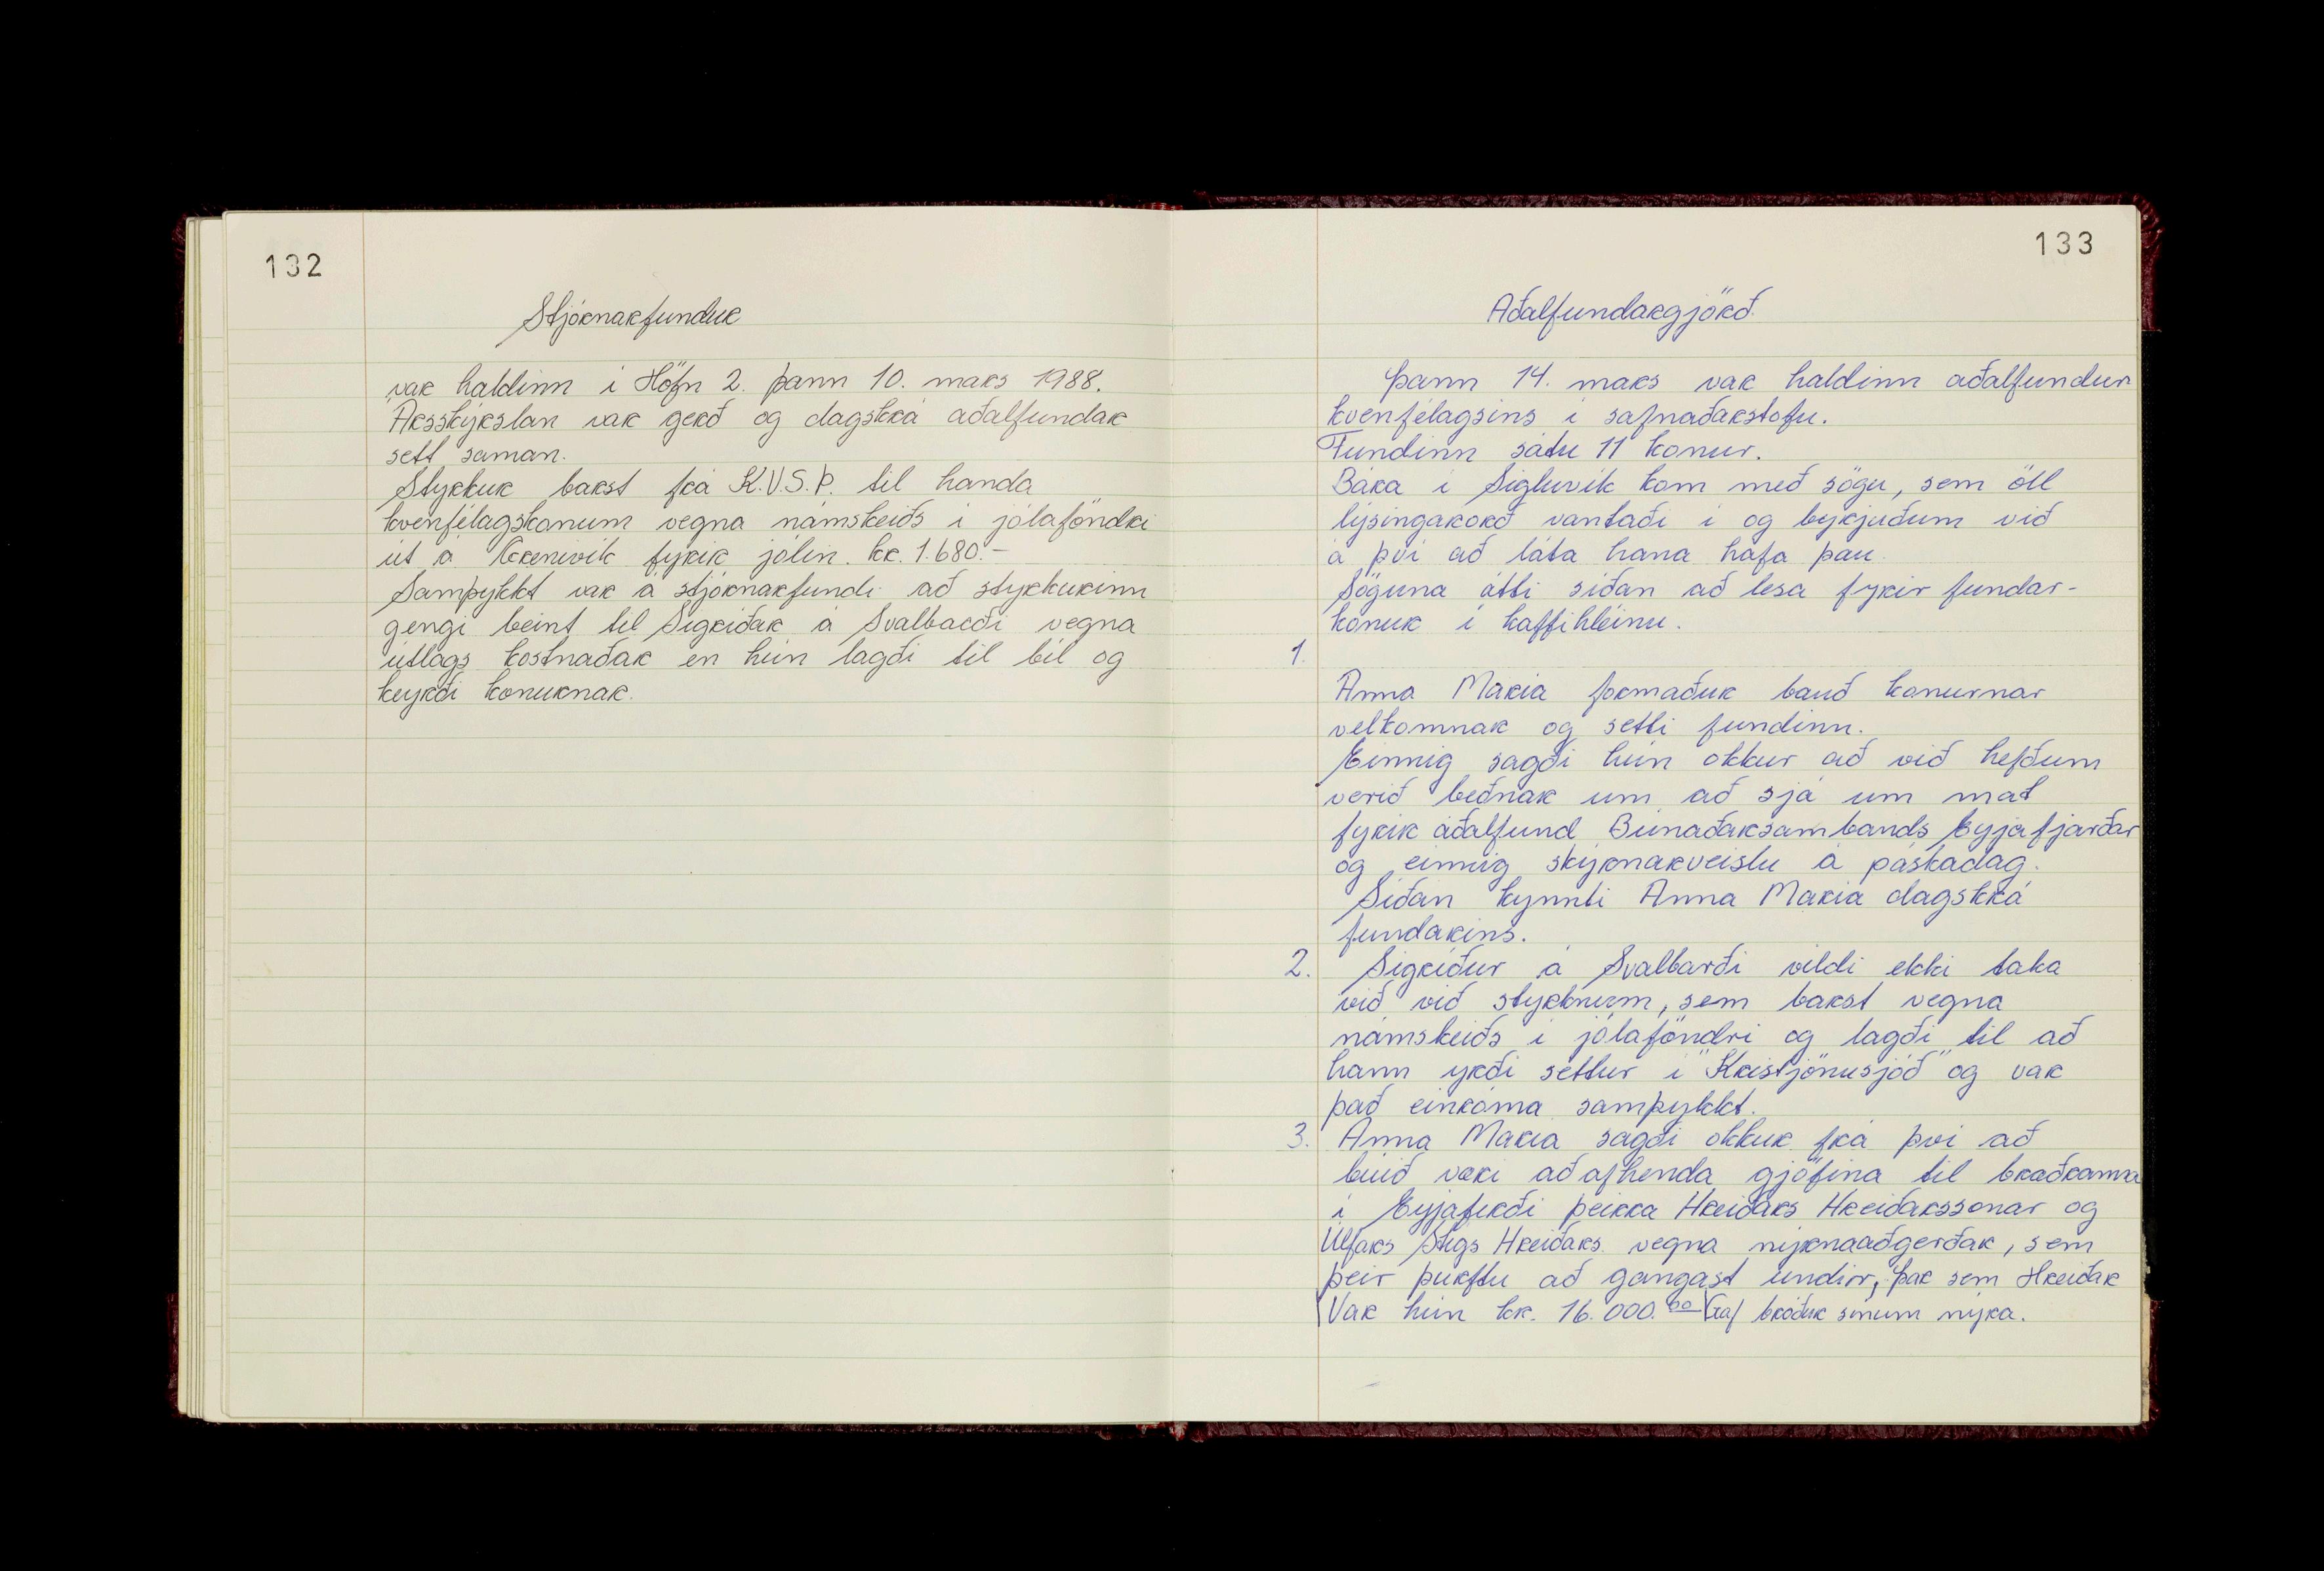 132
Stjórnarfundur
var haldinn í Höfn 2. þann 10. mars 1988.
Ársskýrslan var gerð og dagskrá aðalfundar
sett saman.
Styrkur barst frá K.V.S.Þ. til handa
kvenfélagskonum vegna námskeiðs í jólaföndri
út á Grenivík fyrir jólin. kr. 1.680.-
Samþykkt var á stjórnarfundi að styrkurinn
gengi beint til Sigríðar á Svalbarði vegna
útlags kostnaðar en hún lagði til bíl og
keyrði konurnar.
133
Aðalfundargjörð.
Þann 14. mars var haldinn aðalfundur
kvenfélagsins í safnaðarstofu.
Fundinn sátu 11 konur.
Bára í Sigluvík kom með sögu, sem öll
lýsingarorð vantaði í og byrjuðum við
á því að láta hana hafa þau.
Söguna átti síðan að lesa fyrir fundar-
konur í kaffihléinu.
1.
Anna María formaður bauð konurnar
velkomnar og setti fundinn.
Einnig sagði hún okkur að við hefðum
verið beðnar um að sjá um mat
fyrir aðalfund Búnaðarsambands Eyjafjarðar
og einnig skýrnarveislu á páskadag.
Síðan kynnti Anna María dagskrá
fundarins.
2. Sigríður á Svalbarði vildi ekki taka
við við styrknum, sem barst vegna
námskeiðs í jólaföndri og lagði til að
hann yrði settur í "Kristjönusjóð" og var
það einróma samþykkt.
3. Anna María sagði okkur frá því að
búið væri að afhenda gjöfina til bræðranna
í Eyjafirði þeirra Hreiðars Hreiðarssonar og
Úlfars Stigs Hreiðars. vegna nýrnaaðgerðar, sem
þeir þurftu að gangast undir, þar sem Hreiðar
Var hún kr. 16.000.00 Gaf bróður sínum nýra.